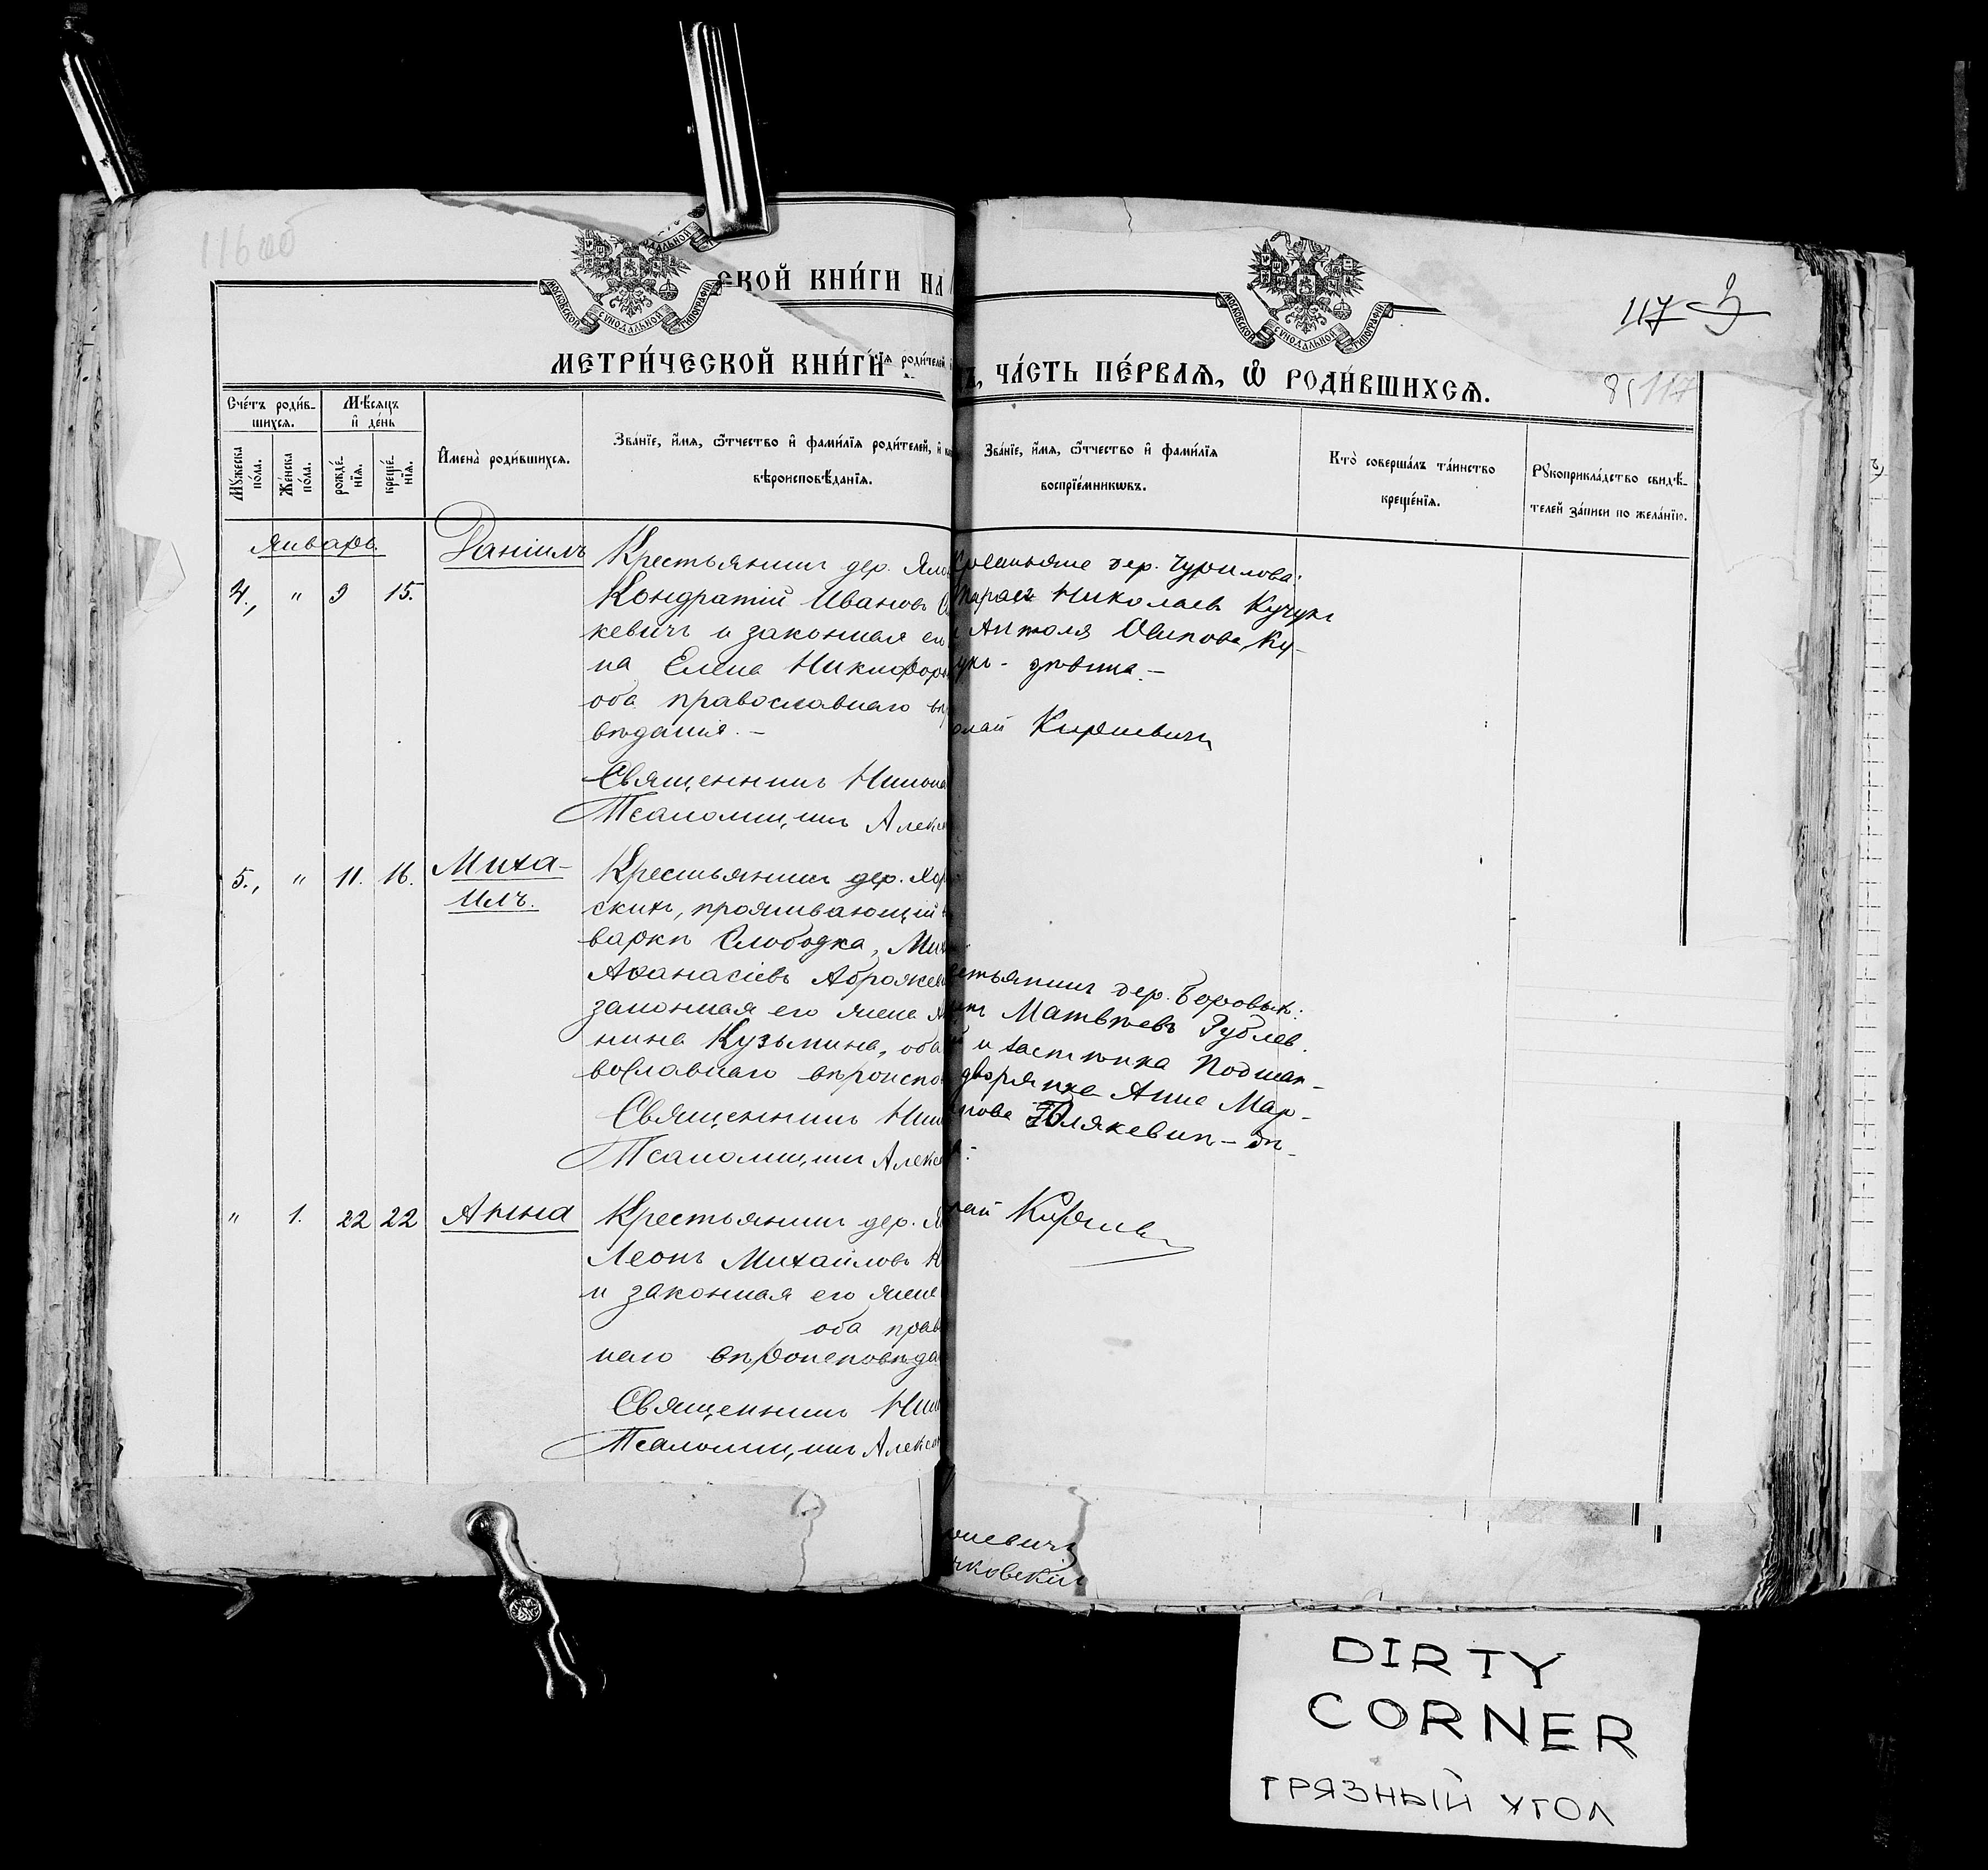 116 об
117
ской книги на
МЕТРИЧЕСКОЙ КНИГИ
ія родителей
, ЧАСТЬ ПЕРВАЯ, Ѡ РОДИВШИХСЯ.
117
МОСКОВСКОЙ СѴНОДАЛЬНОЙ ТИПОГРАФІИ
МОСКОВСКОЙ СѴНОДАЛЬНОЙ ТИПОГРАФІИ
Счетъ родив-
шихся.
Мѣсяцъ
и день
Мужеска пола.
Женска пола.
рожде-
нія.
креще-
нія.
Имена родившихся.
Званіе, имя, ѿчество и фамилія родителей, и
вѣроисповѣданія.
Званіе, имя, ѿчество и фамилія
воспріемникѡвъ.
Кто совершалъ таинство
крещенія.
Рукоприкладство свидѣ-
телей записи по желанію.
Январь.
4., " 9 15.
Даніилъ
Крестьянинъ дер.
Кондратій Ивановъ
кевичъ и законная его
на Елена Никифор
оба православнаго вѣ
вѣданія. –
Священникъ Никола
Псаломщикъ Алекс
Крестьяне дер. Чурилова:
Тарасъ Николаевъ Кучукъ
Антоля Осипова Ку-
укъ - дѣвица. –
олай Кирневичъ
5., " 11. 16.
Миха-
илъ.
Крестьянинъ дер. Хор
скихъ, проживающій
варкѣ Слободка, Мих
Аѳанасіевъ Аброжев
законная его жена
нина Кузьмина, оба
вославнаго вѣроиспо
Священникъ Ник
Псаломщикъ Алекс
естьянинъ дер. Боровых:
Матвѣевъ Рублев.
и застѣнка Подшап-
дворянка Анна Мар-
нова Полякевичъ – дѣ-
лай
" 1. 22 22
Анна
Крестьянинъ дер.
Леонъ Михайловъ К
и законная его жена
оба прав
наго вѣроисповѣда
Священникъ Ник
Псаломщикъ Алекс
рневичъ
чковскій
DIRTY
CORNER
ГРЯЗНЫЙ УГОЛ